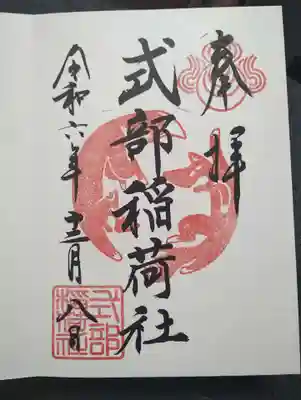 奉拝
式部稲荷社
令和六年十二月八日
式部